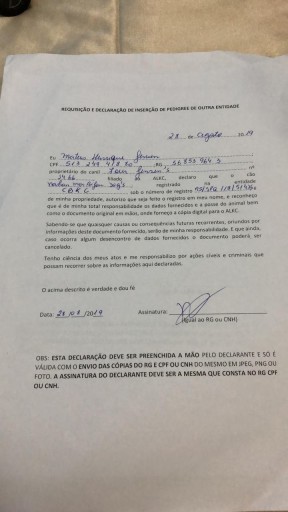 REQUISIÇÃO E DECLARAÇÃO DE INSENÇÃO DE PEDIGREE DE OUTRA ENTIDADE
28 de agosto 2019
Eu Henrique
CPF RG
proprietário do canil nº
filiado ao ALKC, declaro que o cão
registrado na entidade
CBKC sob o número de registro
de minha propriedade, autorizo que seja feito o registro em meu nome, e reconheço
que é de minha total responsabilidade os dados fornecidos e a posse do animal bem
como o documento original em mãos, onde forneço a cópia digital para o ALKC.
Sabendo-se que quaisquer causas ou consequências futuras recorrentes, oriundos por
informações deste documento fornecido, serão de minha responsabilidade. E que ainda,
caso ocorra algum desencontro de dados fornecidos o documento poderá ser
cancelado.
Tenho ciência dos meus atos e me responsabilizo por ações cíveis e criminais que
possam recorrer sobre as informações aqui declaradas.
O acima descrito é verdade e dou fé
Data: 28/8/2019 Assinatura:
(Igual ao RG ou CNH)
OBS: ESTA DECLARAÇÃO DEVE SER PREENCHIDA A MÃO PELO DECLARANTE E SÓ É
VÁLIDA COM O ENVIO DAS CÓPIAS DO RG E CPF OU CNH DO MESMO EM JPEG, PNG OU
FOTO. A ASSINATURA DO DECLARANTE DEVE SER A MESMA QUE CONSTA NO RG CPF
OU CNH.